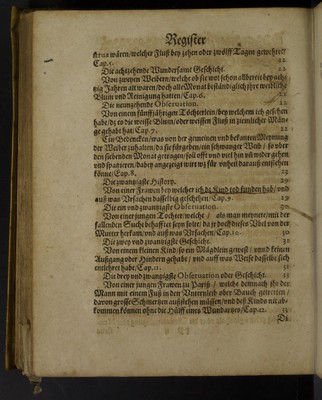 Register
strus wären/welcher Fluß bey zehen oder zwölff Tagen gewehret/
Cap.5. 22
Die achtzehende Wundersame Geschicht. 22
Von zweyen Weibern/welche ob sie wol schon allbereit bey achtzig
Jahren alt waren/doch alle Monat beständiglich jhre weibliche
Blum vnd Reinigung hatten/Cap.6. 22
Die neunzehende Observation. 22
Von einem fünffjährigen Töchterlein/bey welchem ich gesehen
habe/dz es die weisse Blum/oder weissen Fluß in ziemlicher Mänge
gehabt hat/Cap.7. 22
Ein Bedencken/was von der gemeinen vnd bekanten Meynung
der Weiber zuhalten/da sie fürgeben/ein schwanger Weib/so vber
den siebenden Monat getragen/soll offt vnd viel hin vnd wider gehen
vnd spatzieren/dabey angezeigt wirt wz für vnheil darauß entstehen
könne/Cap.8. 23
Die zwantzigste History. 29
Von einer Frawen bey welcher ich dz Kind tod funden hab/vnd
auß was Vrsachen dasselbig geschehen/Cap.9. 29
Die ein vnd zwantzigste Observation. 30
Von einer jungen Tochter/welche/als man meynete/mit der
fallenden Sucht behafftet seyn solte/da jr doch dieses Vbel von der
Mutter herkam/vnd auß was Vrsachen/Cap.10. 30
Die zwey vnd zwantzigste Geschicht. 31
Von einem kleinen Kind/so ein Mägdlein gewest/vnnd keinen
Außgang oder Hindern gehabt/vnd auff was Weise dasselbe sich
entlehret habe/Cap.11. 31
Die drey vnd zwantzigste Observation oder Geschicht. 33
Von einer jungen Frawen zu Pariß/welche demnach jhr der
Mann mit einem Fuß in den Vnterleib oder Bauch getretten/
davon grosse Schmertzen außstehen müssen/vnd deß Kinds nit abkommen
können ohne die Hülff eines Wundartztes/Cap.12. 33
Di